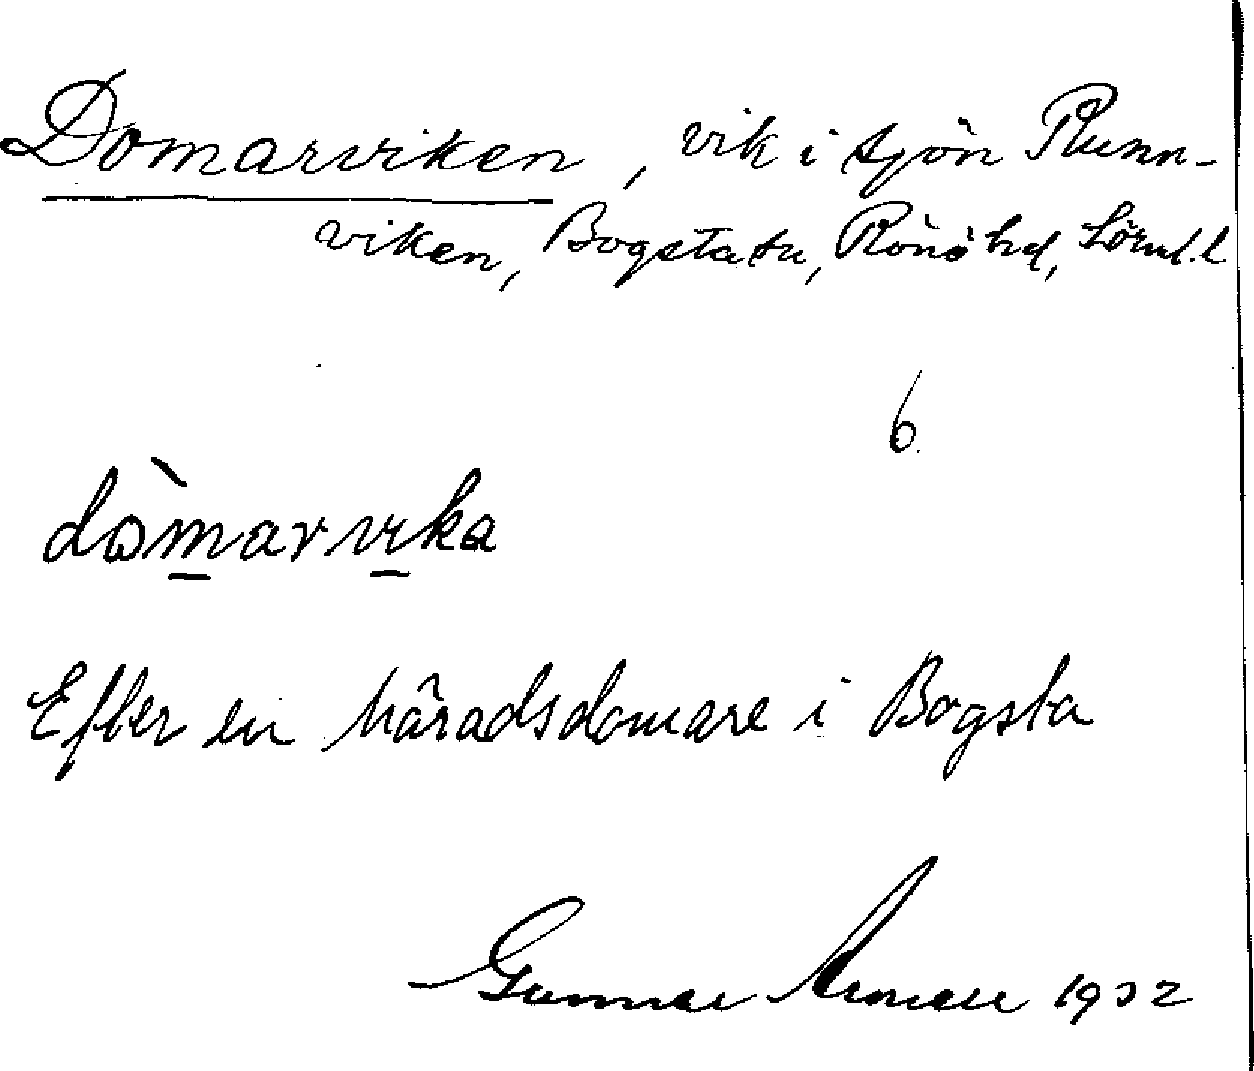 Domarviken, vik i sjön Runn-
viken, Bogsta sn, Rönö hd, Sörml. l
6
dòmarvika
Efter en häradsdomare i Bogsta
Gunnar 1932